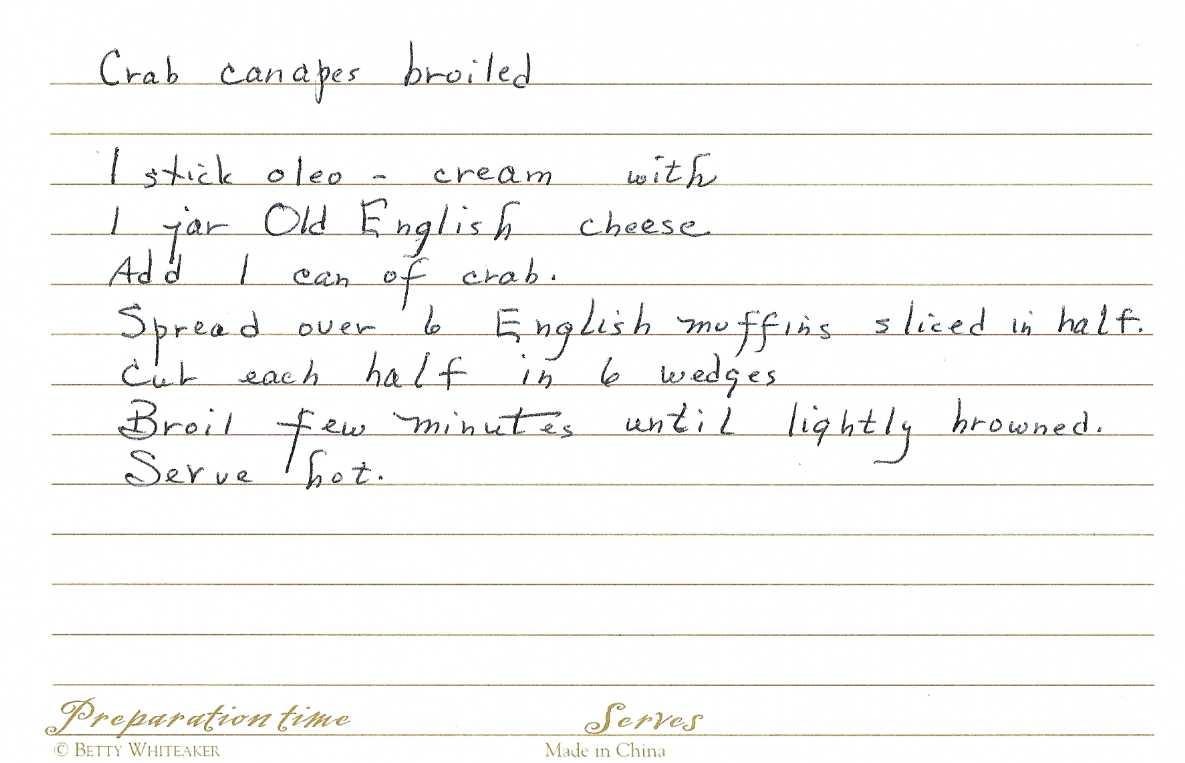 Crab canapes broiled
1 stick oleo - cream with
1 jar Old English cheese
Add 1 can of crab.
Spread over 6 English muffins sliced in half.
Cut each half in 6 wedges
Broil few minutes until lightly browned.
Serve hot.
Preparation time Serves
© BETTY WHITEAKER Made in China